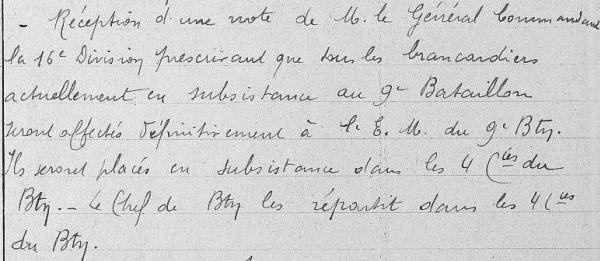 - Réception d'une note de M. le Général Commandant
la 16e Division prescrivant que tous les brancardiers
actuellement en subsistance au 9e Bataillon
seront affectés définitivement à l'E. M. du 9e Btn.
Ils seront placés en subsistance dans les 4 Cies du
Btn. - Le Chef de Btn les répartit dans les 4 Cies
du Btn.